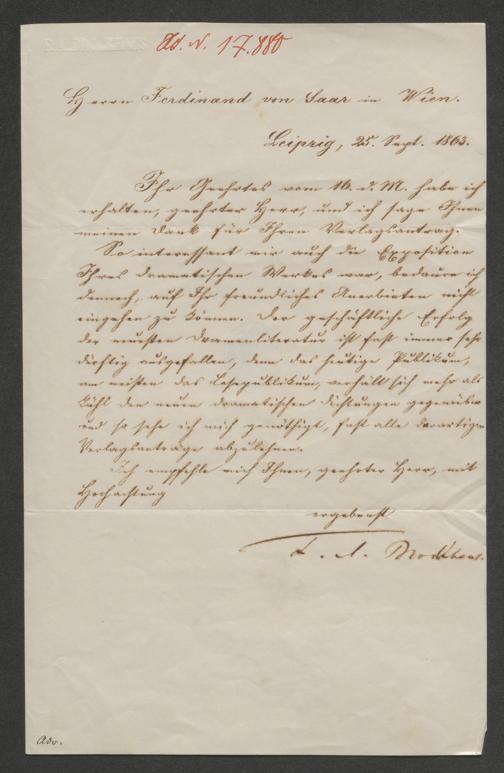 Ad. N. 17.880
Herrn Ferdinand von Saar in Wien.
Leipzig, 25. Sept. 1863.
Ihr Geehrtes vom 16. d. M. habe ich
erhalten, geehrter Herr, und ich sage Ihnen
meinen Dank für Ihren Verlagsantrag.
So interessant mir auch die Exposition
Ihres dramatischen Werkes war, bedaure ich
dennoch, auf Ihr freundliches Anerbieten nicht
eingehen zu können. Der geschäftliche Erfolg
der neuesten Dramenliteratur ist fast immer sehr
dürftig ausgefallen, denn das heutige Publikum,
am meisten das Lesepublikum, verhält sich mehr als
kühl den neuen dramatischen Dichtungen gegenüber
und so sehe ich mich genöthigt, fast alle derartigen
Verlagsanträge abzulehnen.
Ich empfehle mich Ihnen, geehrter Herr, mit
Hochachtung
ergebenst
F. A. Brockhaus.
Adv.